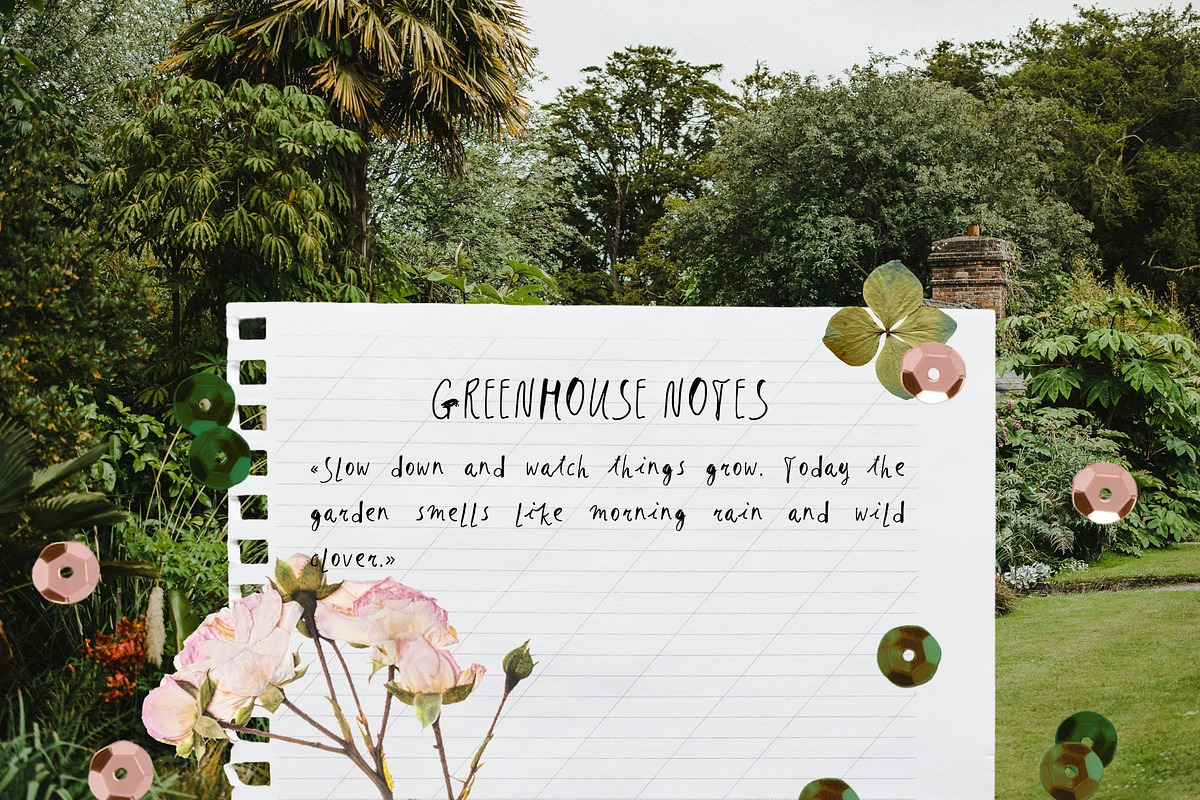 GREENHOUSE NOTES
«Slow down and watch things grow. Today the
garden smells like morning rain and wild
clover.»